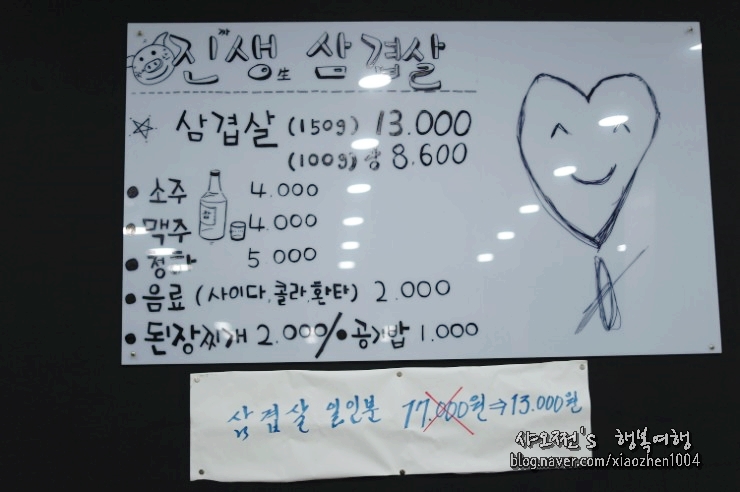 진짜생生 삼겹살
삼겹살 (150g) 13.000
(100g)당 8.600
소주 4.000
맥주 4.000
청하 5 000
음료 (사이다,콜라,환타) 2.000
된장찌개 2.000/ 공기밥 1.000
삼겹살 일인분 17.000원⇒13.000원
샤오쩐's 행복여행
blog.naver.com/xiaozhen1004